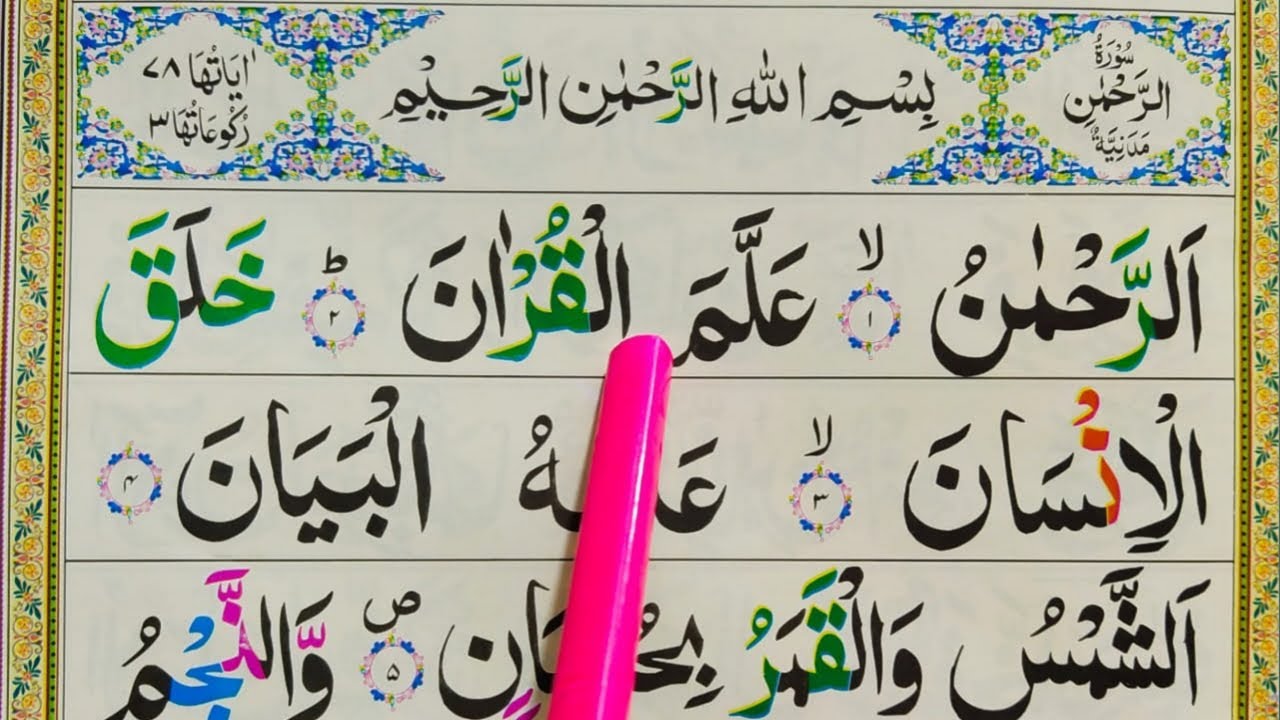 سُوْرَةُ
الرَّحْمٰنِ
مَدَنِيَّةٌ
بِسْمِ اللّٰهِ الرَّحْمٰنِ الرَّحِيْمِ
اٰيَاتُهَا ٧٨
رُكُوْعَاتُهَا ٣
اَلرَّحْمٰنُ ۙ ١ عَلَّمَ الْقُرْاٰنَ ؕ ٢ خَلَقَ
الْاِنْسَانَ ۙ ٣ الْبَيَانَ ٤
اَلشَّمْسُ وَالْقَمَرُ ص ٥ وَّالنَّجْمُ